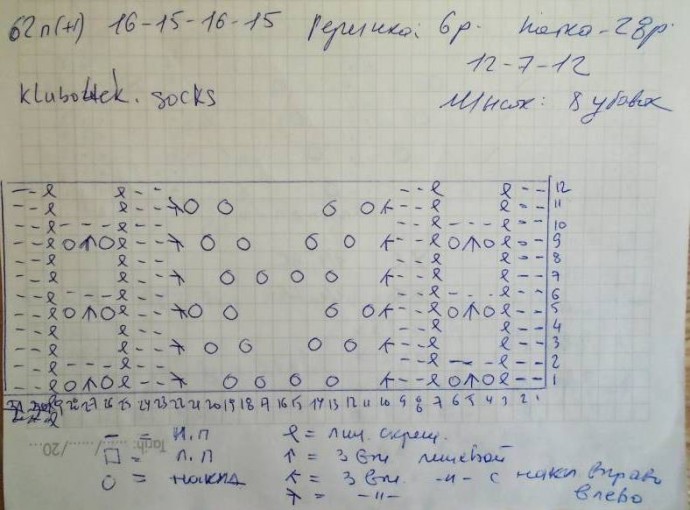 62 п(+1) 16-15-16-15 Резинка: 6 р. Пятка - 28 р.
12-7-12
klubo4ek. socks Мысок: 8 убавок
12
11
10
9
8
7
6
5
4
3
2
1
28 27 26 25 24 23 22 21 20 19 18 17 16 15 14 13 12 11 10 9 8 7 6 5 4 3 2 1
— = И.п ℓ = лиц. скрещ.
□ = Л.П ↑ = 3 вм лицевой
○ = накид 3 вм. -и- с накл вправо
= -и- влево
/20...